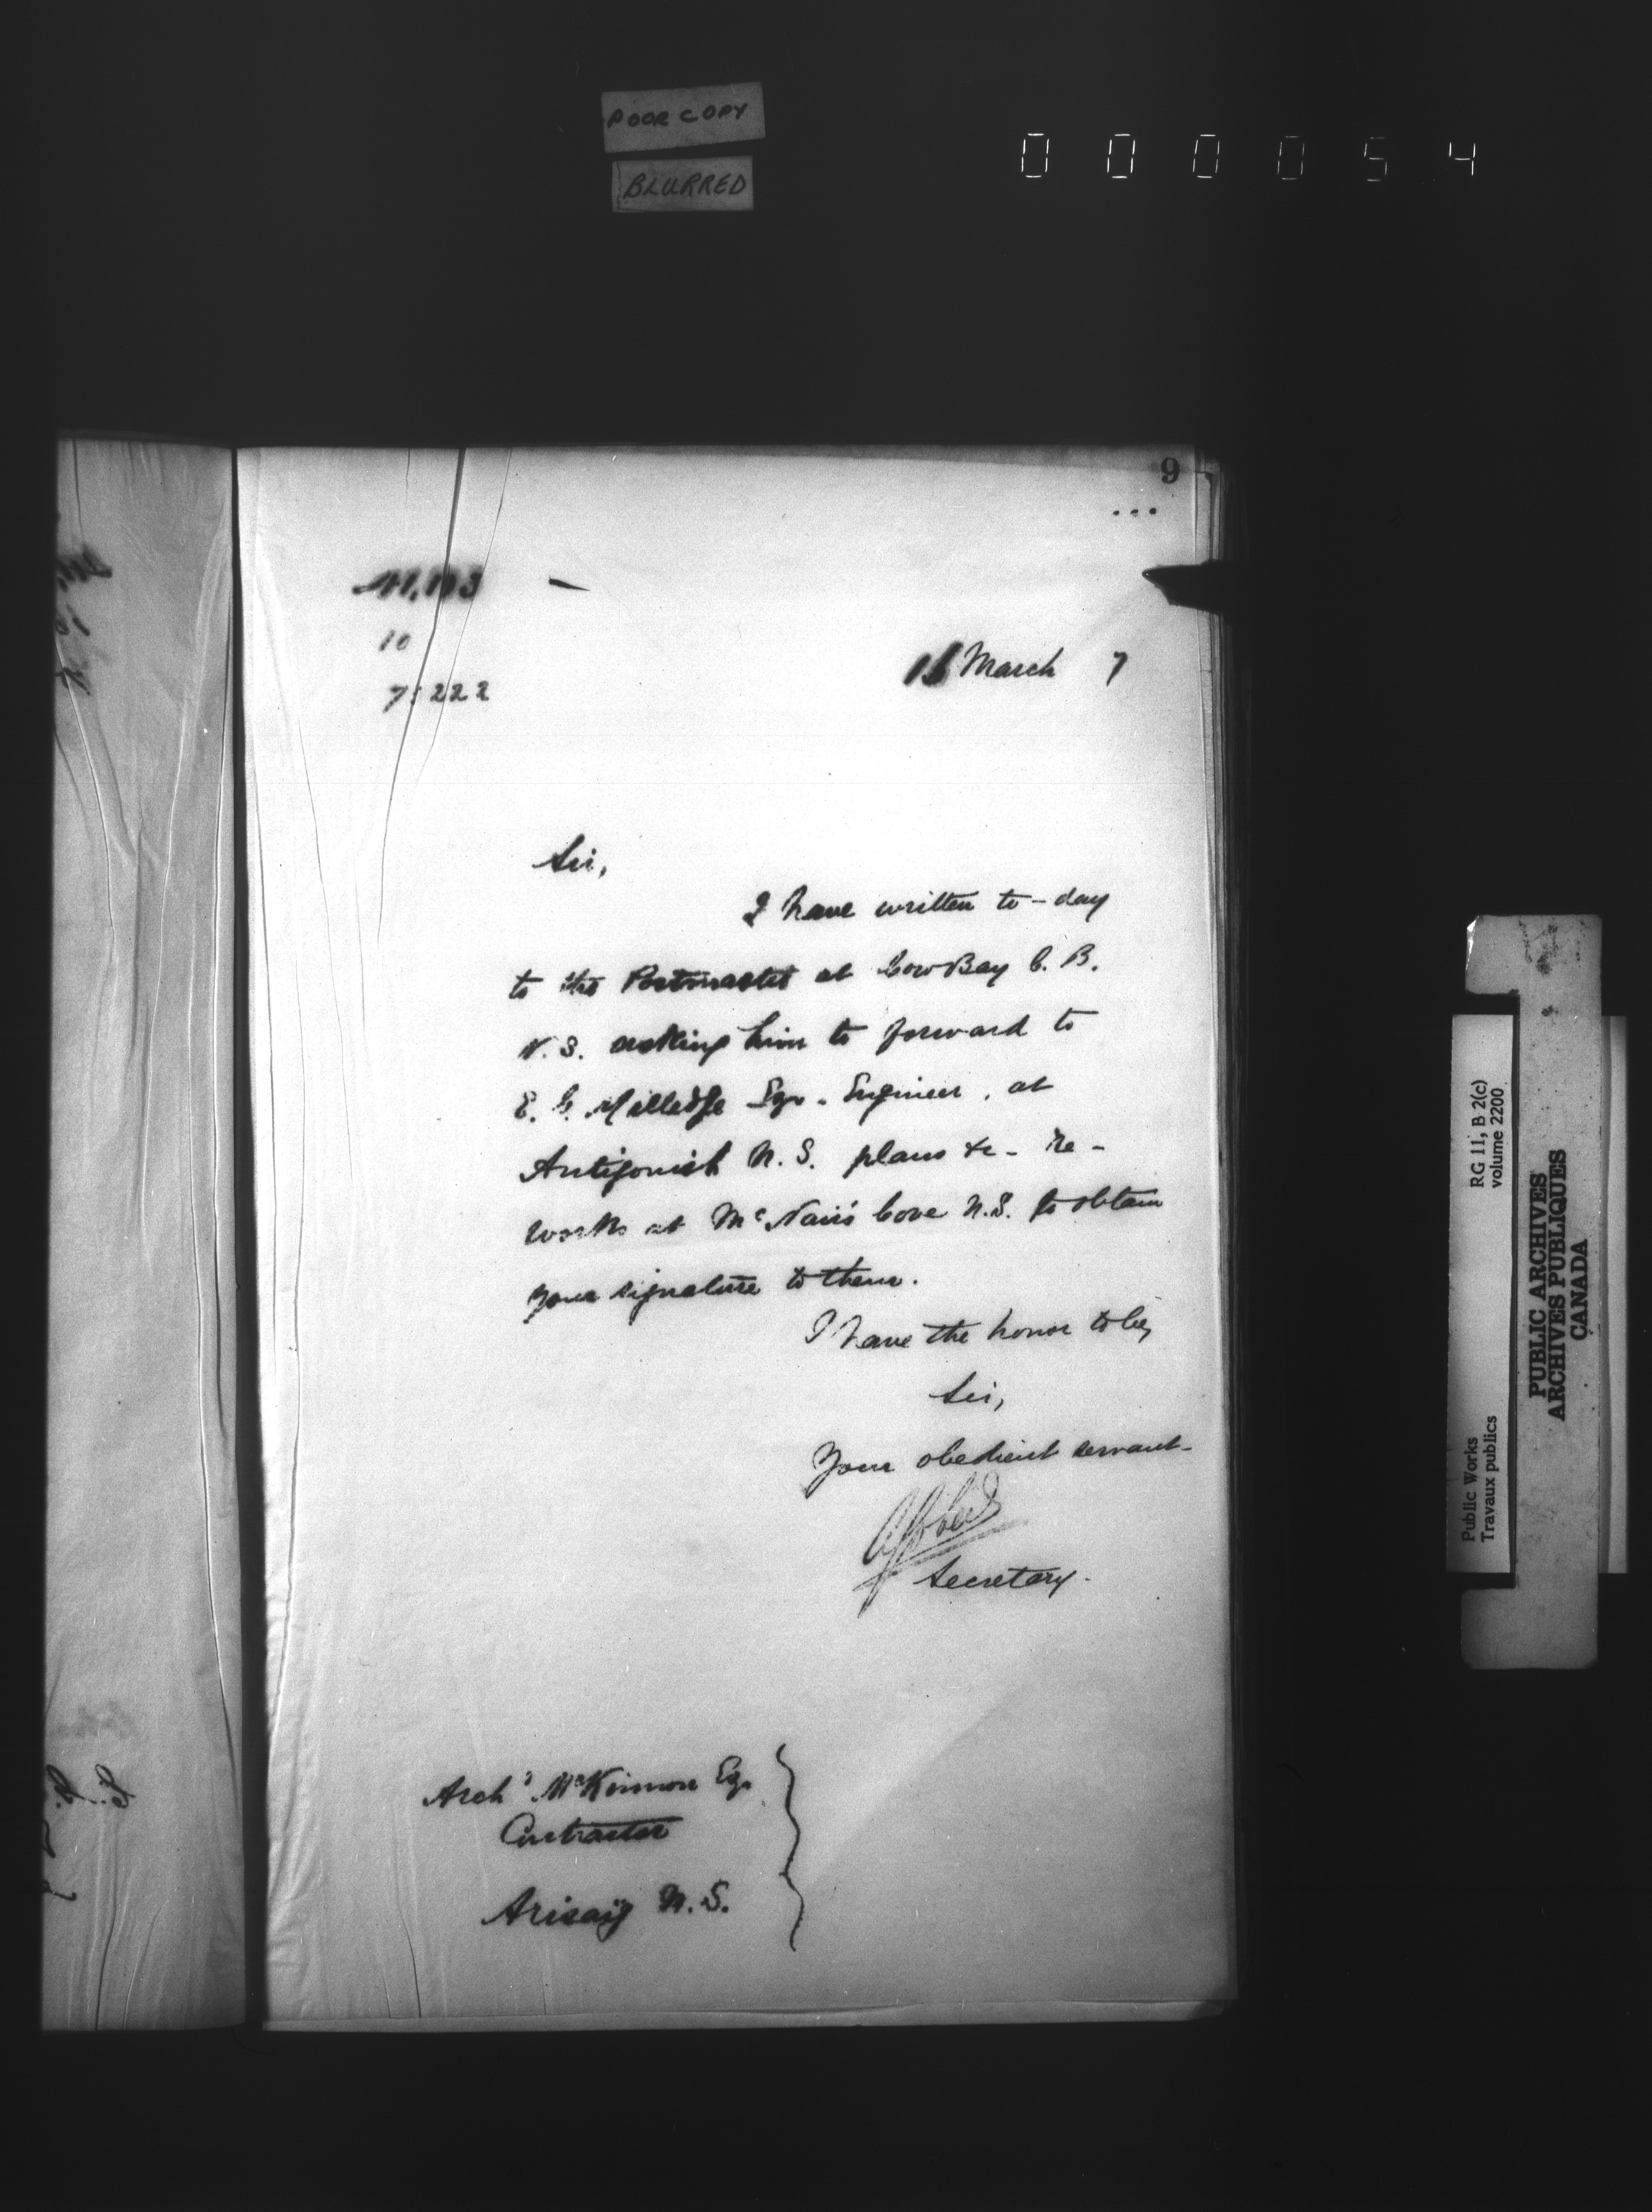 POOR COPY
BLURRED
000054
9
10
75222
March 7
Sir,
I have written to-day
to the Postmaster at Cow Bay C. B.
N. S. asking him to forward to
E. G. Milledge Esqr. Engineer, at
Antigonish N. S. plans &c - re -
works at McNair's Cove N.S. to obtain
your signature to them.
I have the honor to be,
Sir,
Your obedient servant
Secretary.
Archd McKinnon Esq.
Contractor
Arisaig N. S.
Public Works
Travaux publics
RG 11, B 2(c)
volume 2200
PUBLIC ARCHIVES
ARCHIVES PUBLIQUES
CANADA